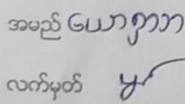 အမည် ယောဂျာဘ
လက်မှတ်